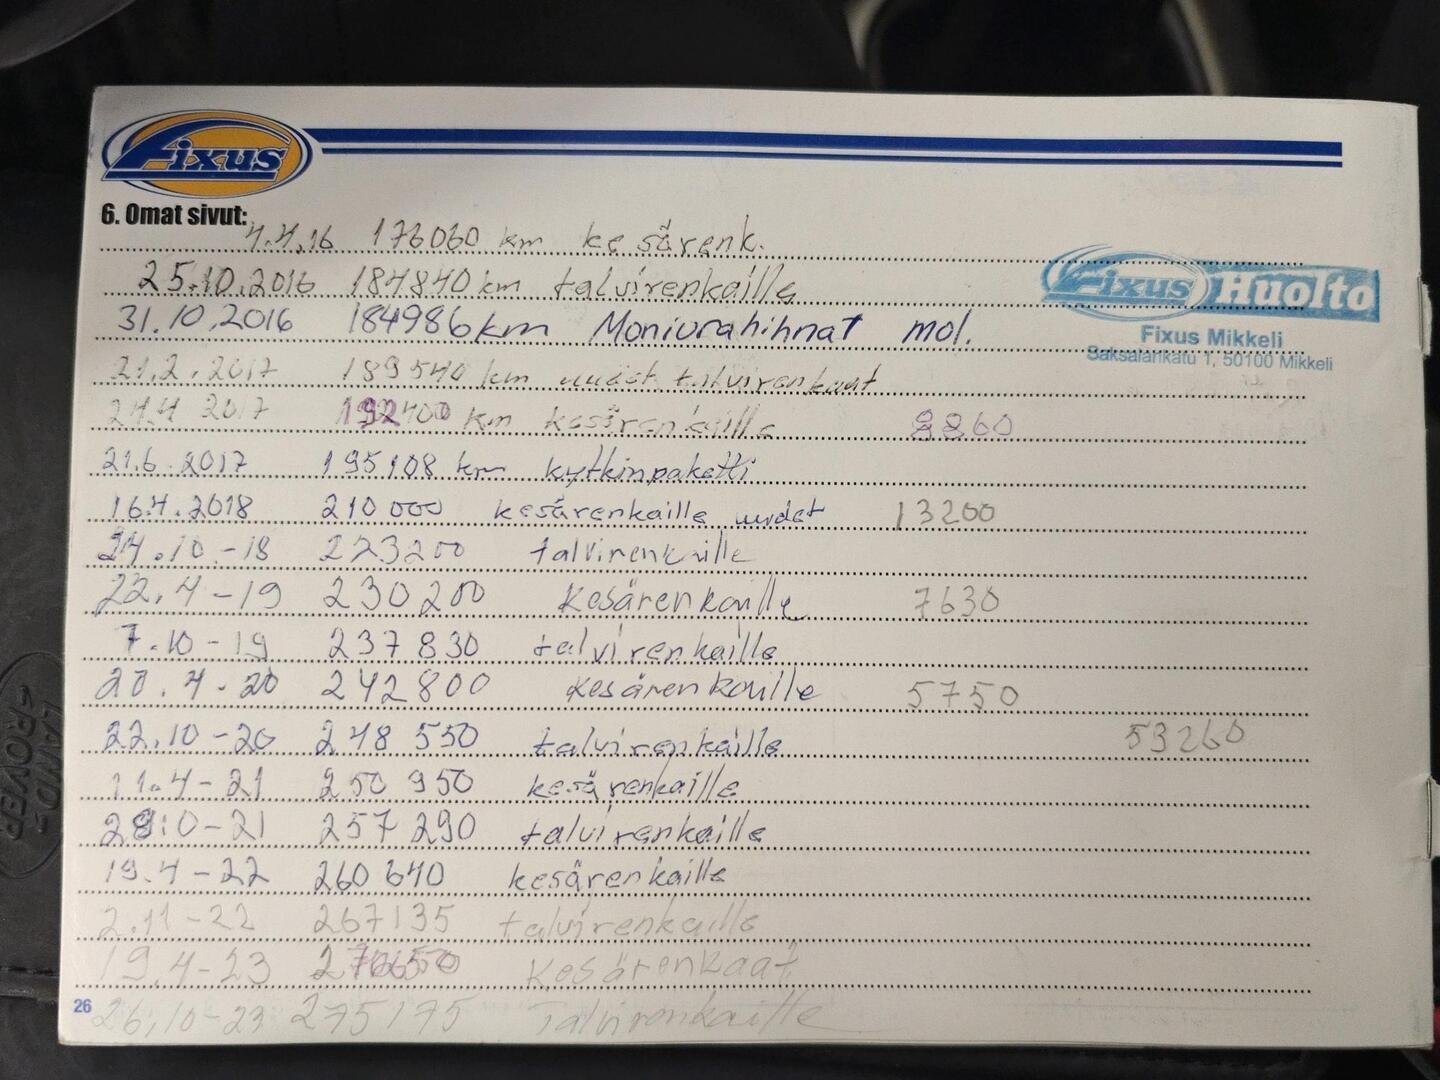 Fixus
6. Omat sivut:
4.4.16 176060 km kesärenk.
25.10.2016 184840 km talvirenkaille
Fixus Huolto
31.10.2016 184986 km Moniurahihnat mol.
Fixus Mikkeli
Saksalankatu 1, 50100 Mikkeli
21.2.2017 189540 km uudet talvirenkaat
24.4 2017 192400 km kesärenkaille 8860
21.6.2017 195108 km kytkinpaketti
16.4.2018 210 000 kesärenkaille uudet 13200
24.10-18 223200 talvirenkaille
22.4-19 230 200 Kesärenkaille 7630
7.10-19 237 830 talvirenkaille
20.4-20 242 800 Kesärenkaille 5750
22.10-20 248 550 talvirenkaille 53260
11.4-21 250 950 kesärenkaille
257 290 talvirenkaille
19.4-22 260 640 kesärenkaille
2.11-22 267135 talvirenkaille
19.4-23 Kesärenkaat
26 26.10-23 275175 Talvirenkaille
LAND ROVER